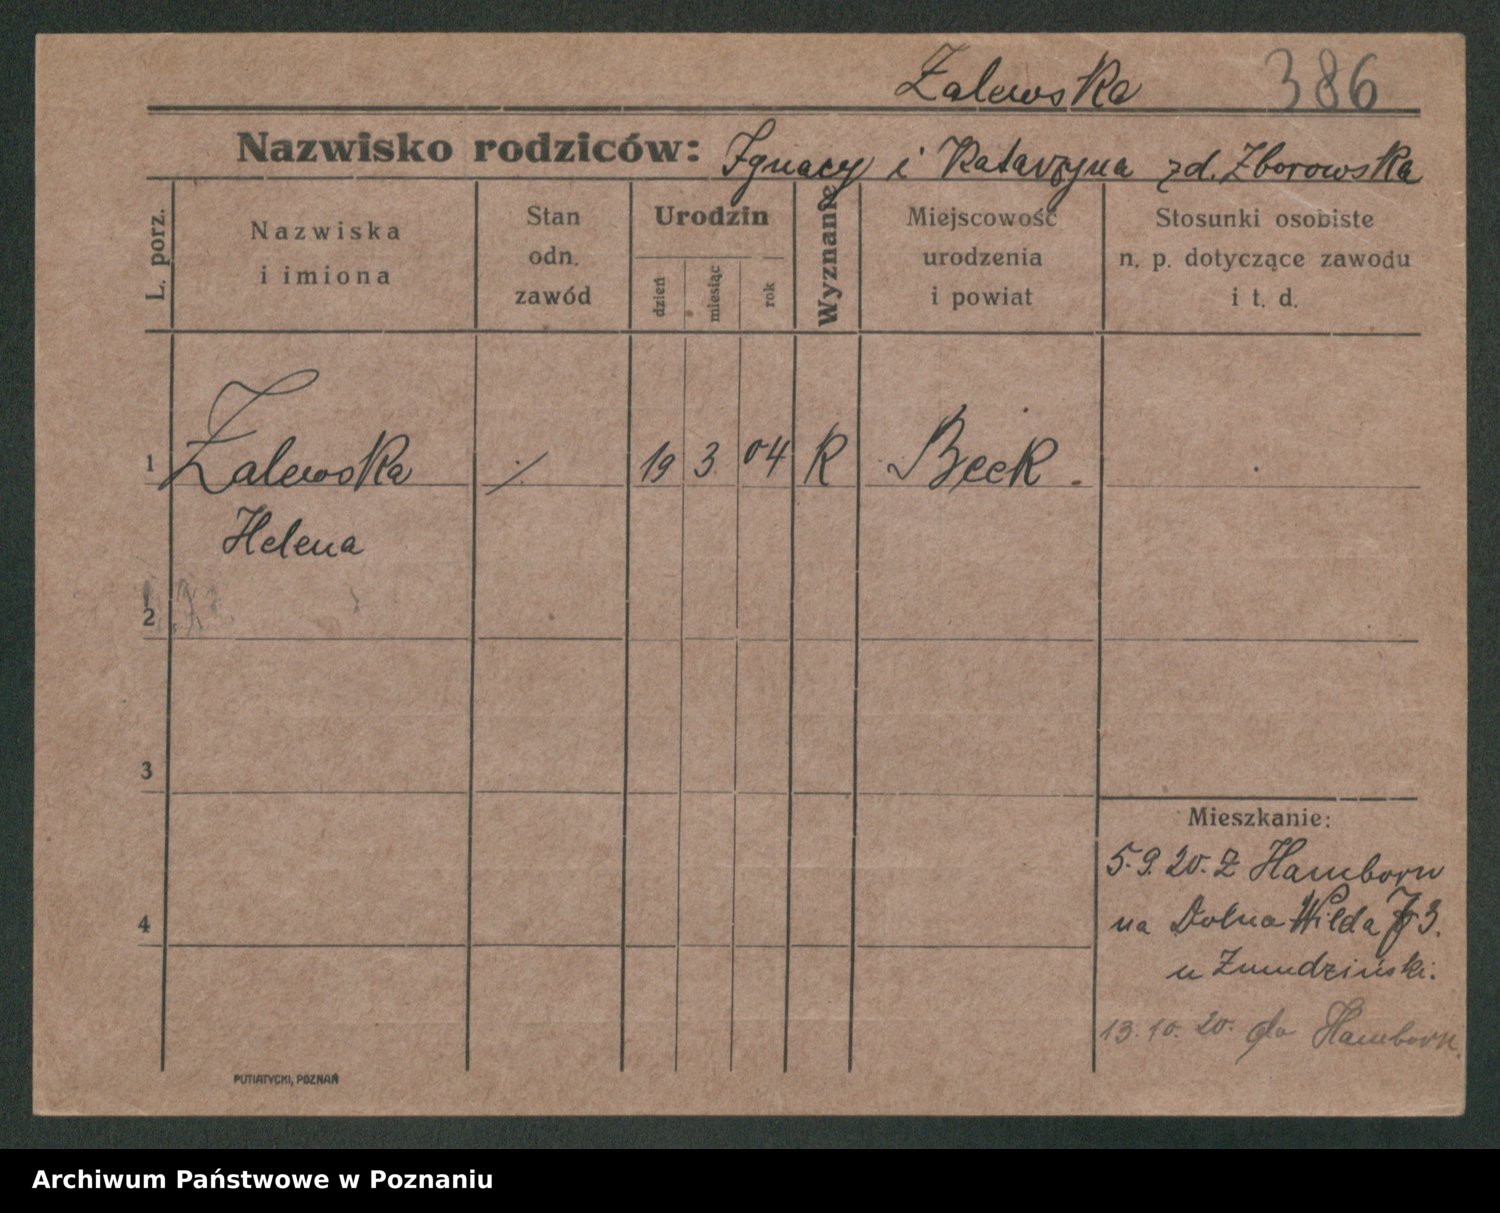 Zalewska 386
Nazwisko rodziców: Ignacy i Katarzyna zd. Zborowska
L. porz.
Nazwiska
i imiona
Stan
odn.
zawód
Urodzin
dzień
miesiąc
rok
Wyznanie
Miejscowość
urodzenia
i powiat
Stosunki osobiste
n. p. dotyczące zawodu
i t. d.
1 Zalewska ·/. 19 3 04 K Beek.
Helena
2
3
4
Mieszkanie:
5.9.20. z Hamborn
na Dolna Wilda 3.
u Zmudziński.
13.10.20. do Hamborn.
PUTIATYCKI, POZNAŃ
Archiwum Państwowe w Poznaniu